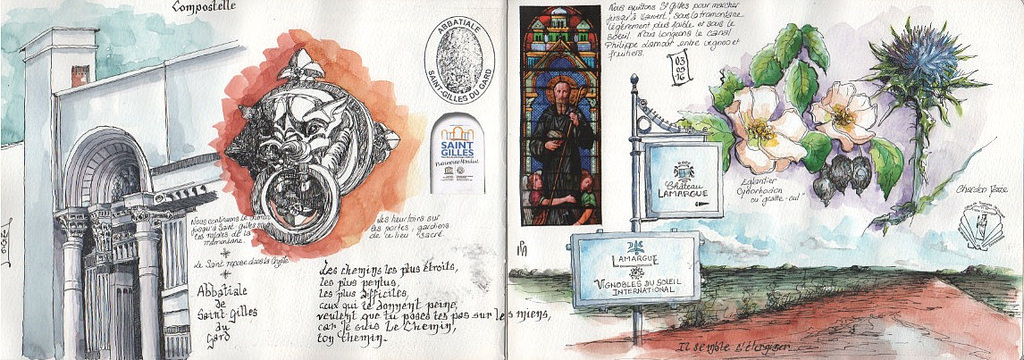 Compostelle
ABBATIALE
SAINT-GILLES DU GARD
SAINT
GILLES
Patrimoine Mondial
Nous continuons le chemin
jusqu'à Saint-gilles sous
les rafales de la
tramontane.
Le Saint repose dans la crypte
Les heurtoirs sur
les portes, gardiens
de ce lieu sacré.
Abbatiale
de
Saint-Gilles
du
Gard
Les chemins les plus étroits,
les plus pentus,
les plus difficiles,
ceux qui te donnent peine,
veulent que tu poses tes pas sur les miens,
car je suis Le Chemin,
ton chemin.
Nous quittons St Gilles pour marcher
jusqu'à Vauvert, sous la tramontane
légèrement plus faible et sous le
soleil. Nous longeons le canal
Philippe Lamour entre vignes et
fruitiers.
03
05
16
Château
LAMARGUE
LAMARGUE
VIGNOBLES DU SOLEIL
INTERNATIONAL
Eglantier
Cynorhodon
ou gratte-cul
Chardon
Il semble s'éloigner